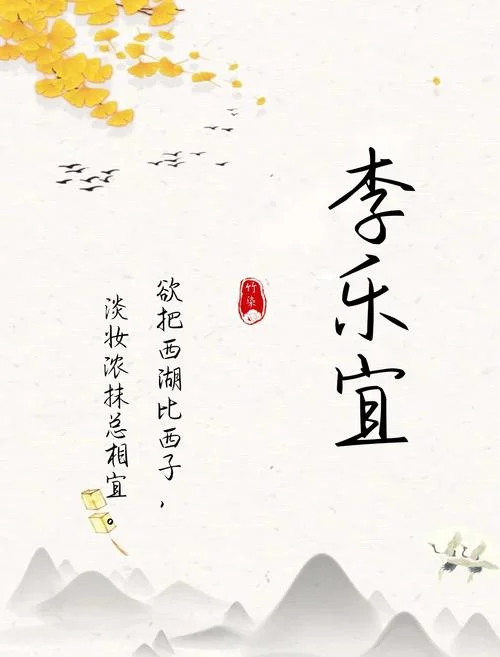 李乐宜
竹染
欲把西湖比西子，
淡妆浓抹总相宜。